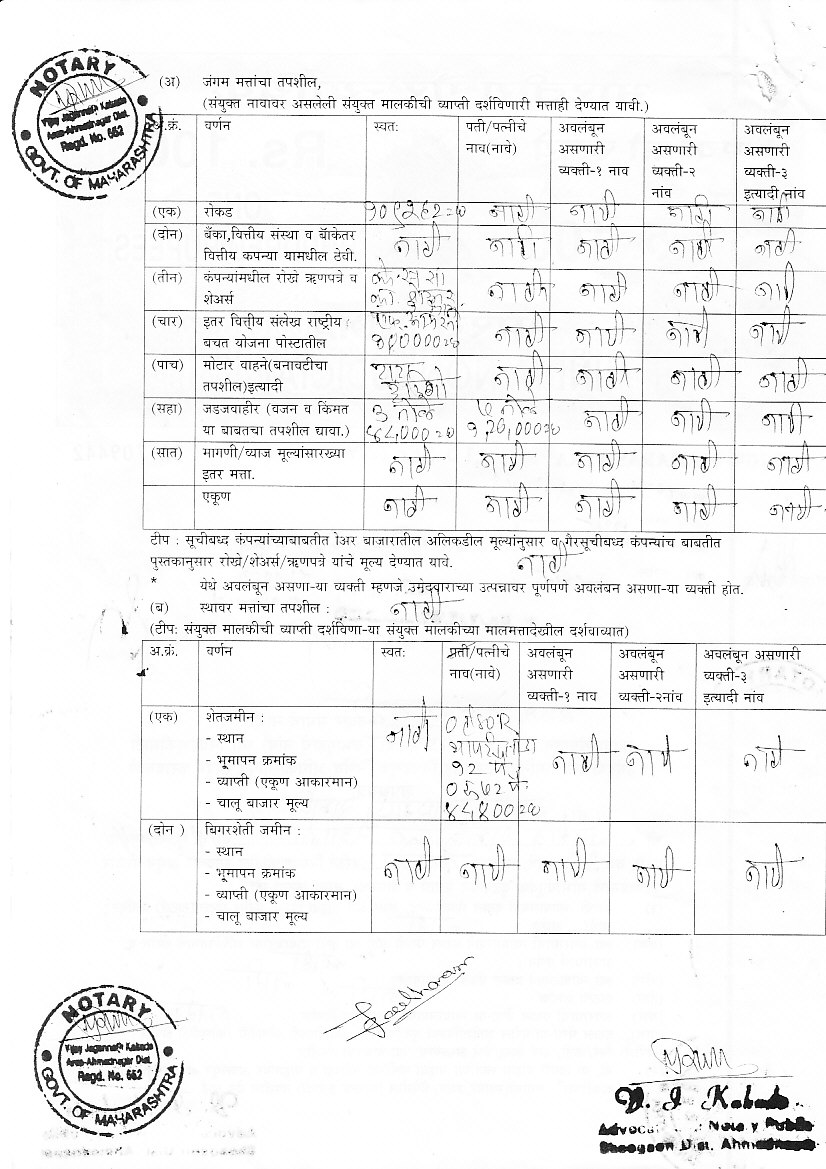 NOTARY
Vijay Jagannath Kabade
Area-Ahmednagar Dist.
Regd. No. 662
GOVT. OF MAHARASHTRA
(अ) जंगम मत्तांचा तपशील,
(संयुक्त नावावर असलेली संयुक्त मालकीची व्याप्ती दर्शविणारी मत्ताही देण्यात यावी.)
अ.क्रं. वर्णन स्वतः पती/पत्नीचे नाव(नावे) अवलंबून असणारी व्यक्ती-१ नाव अवलंबून असणारी व्यक्ती-२ नांव अवलंबून असणारी व्यक्ती-३ इत्यादी नांव
(एक) रोकड नाही नाही नाही नाही
(दोन) बँका,वित्तीय संस्था व बॅाकेतर वित्तीय कपन्या यामधील ठेवी. नाही नाही नाही नाही नाही
(तीन) कंपन्यांमधील रोखे ऋणपत्रे व शेअर्स नाही नाही नाही नाही
(चार) इतर वित्तीय संलेख राष्ट्रीय बचत योजना पोस्टातील नाही नाही नाही नाही
(पाच) मोटार वाहने(बनावटीचा तपशील)इत्यादी नाही नाही नाही नाही
(सहा) जडजवाहीर (वजन व किंमत या बाबतचा तपशील द्यावा.) ३ तोळे ७ तोळे नाही नाही नाही
(सात) मागणी/व्याज मूल्यांसारख्या इतर मत्ता. नाही नाही नाही नाही नाही
एकूण नाही नाही नाही नाही नाही
टीप : सूचीबध्द कंपन्यांच्याबाबतीत शेअर बाजारातील अलिकडील मूल्यांनुसार व गैरसूचीबध्द कंपन्यांच बाबतीत
पुस्तकानुसार रोखे/शेअर्स/ऋणपत्रे यांचे मूल्य देण्यात यावे. नाही
* येथे अवलंबून असणा-या व्यक्ती म्हणजे उमेदवाराच्या उत्पन्नावर पूर्णपणे अवलंबन असणा-या व्यक्ती होत.
(ब) स्थावर मत्तांचा तपशील : नाही
(टीपः संयुक्त मालकीची व्याप्ती दर्शविणा-या संयुक्त मालकीच्या मालमत्तादेखील दर्शवाव्यात)
अ.क्रं. वर्णन स्वतः पती/पत्नीचे नाव(नावे) अवलंबून असणारी व्यक्ती-१ नाव अवलंबून असणारी व्यक्ती-२नांव अवलंबून असणारी व्यक्ती-३ इत्यादी नांव
(एक) शेतजमीन : नाही नाही नाही नाही
- स्थान
- भूमापन क्रमांक
- व्याप्ती (एकूण आकारमान)
- चालू बाजार मूल्य
(दोन ) बिगरशेती जमीन : नाही नाही नाही नाही नाही
- स्थान
- भूमापन क्रमांक
- व्याप्ती (एकूण आकारमान)
- चालू बाजार मूल्य
NOTARY
Vijay Jagannath Kabade
Area-Ahmednagar Dist.
Regd. No. 662
GOVT. OF MAHARASHTRA
V. J. Kabade
Notary Public